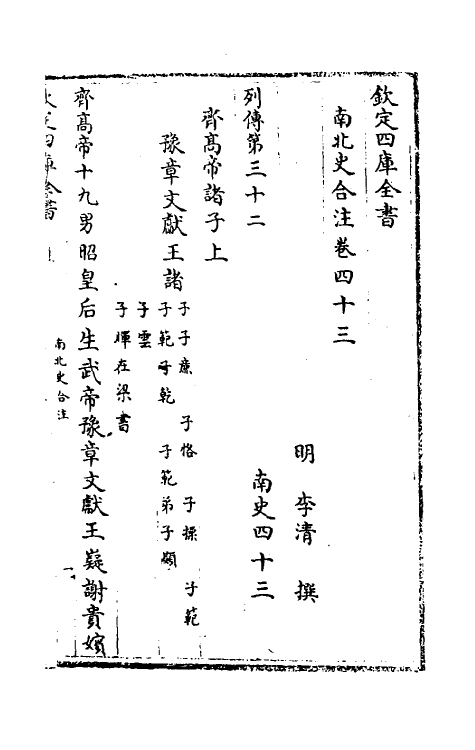 欽定四庫全書
南北史合注卷四十三
明 李清 撰
列傳第三十二
南史四十三
齊高帝諸子上
豫章文獻王諸子 子廉 子恪 子操 子範
子範子乾 子範弟子顯
子雲
子暉在梁書
齊高帝十九男昭皇后生武帝豫章文獻王嶷謝貴嬪
欽定四庫全書
南北史合注
一